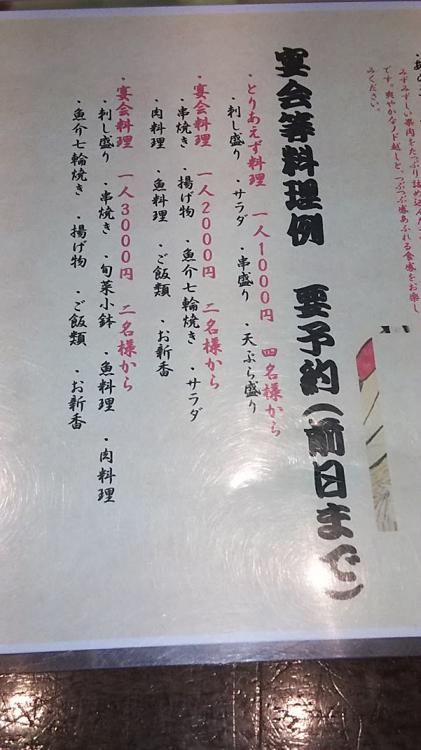 みずみずしい果肉をたっぷり詰め込んだ
です。爽やかなノド越しと、つぶつぶ感あふれる食感をお楽し
みください。
宴会等料理例　要予約(前日まで)
・とりあえず料理　一人1000円　四名様から
・刺し盛り　・サラダ　・串盛り　・天ぷら盛り
・宴会料理　一人2000円　二名様から
・串焼き　・揚げ物　・魚介七輪焼き　・サラダ
・肉料理　・魚料理　・ご飯類　・お新香
・宴会料理　一人3000円　二名様から
・刺し盛り　・串焼き　・旬菜小鉢　・魚料理　・肉料理
・魚介七輪焼き　・揚げ物　・ご飯類　・お新香